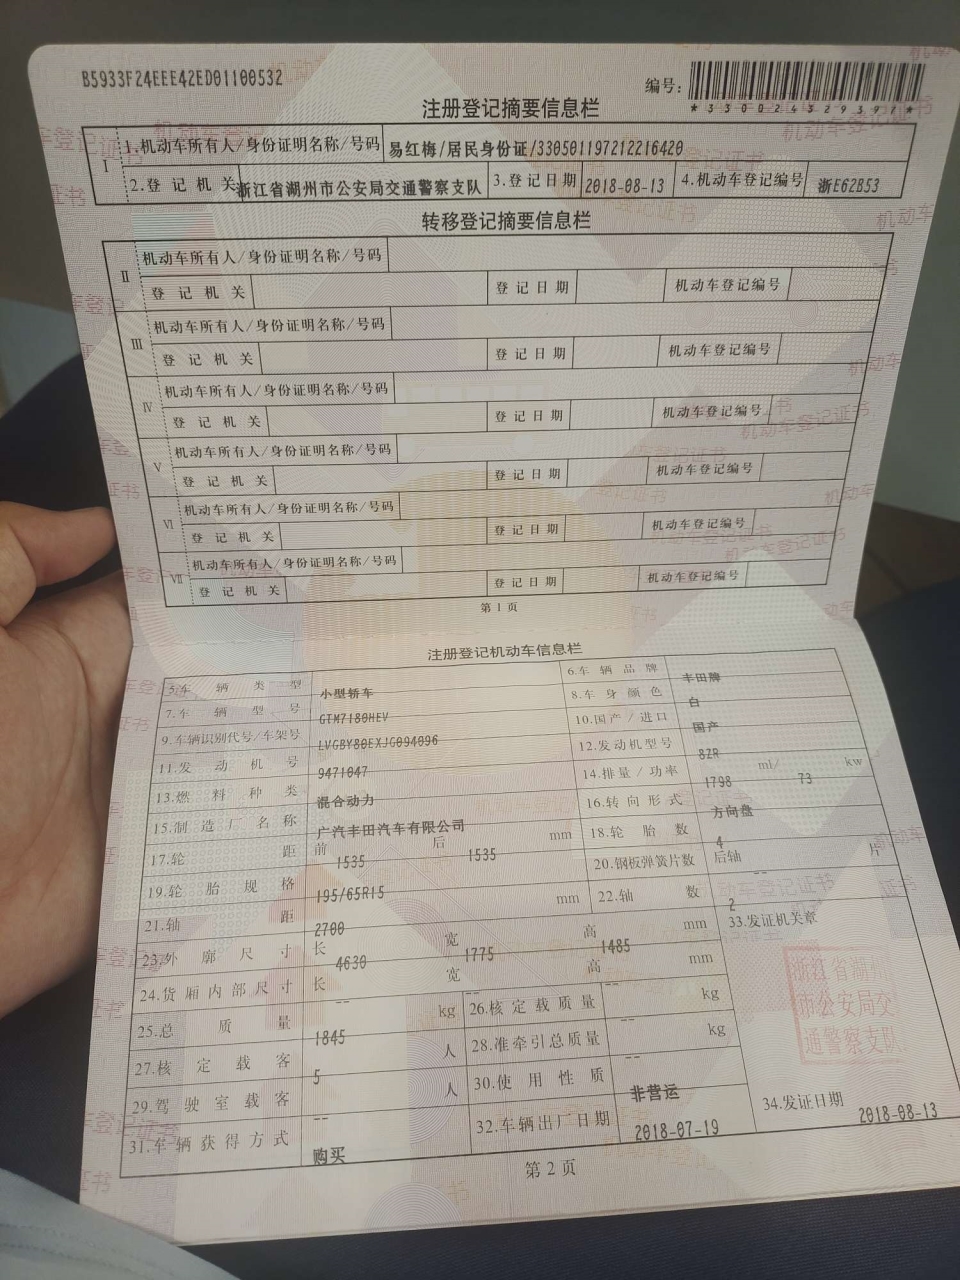 B5933F24EEE42ED01100532
编号:
*330024329397*
注册登记摘要信息栏
Ⅰ 1.机动车所有人/身份证明名称/号码 易红梅/居民身份证/330501197212216420
2.登记机关 浙江省湖州市公安局交通警察支队 3.登记日期 2018-08-13 4.机动车登记编号 浙E62B53
转移登记摘要信息栏
Ⅱ 机动车所有人/身份证明名称/号码
登记机关 登记日期 机动车登记编号
Ⅲ 机动车所有人/身份证明名称/号码
登记机关 登记日期 机动车登记编号
Ⅳ 机动车所有人/身份证明名称/号码
登记机关 登记日期 机动车登记编号
Ⅴ 机动车所有人/身份证明名称/号码
登记机关 登记日期 机动车登记编号
Ⅵ 机动车所有人/身份证明名称/号码
登记机关 登记日期 机动车登记编号
Ⅶ 机动车所有人/身份证明名称/号码
登记机关 登记日期 机动车登记编号
第1页
注册登记机动车信息栏
5.车辆类型 小型轿车 6.车辆品牌 丰田牌
7.车辆型号 GTM7180HEV 8.车身颜色 白
9.车辆识别代号/车架号 LVGBY80EXJG094096 10.国产/进口 国产
11.发动机号 9471047 12.发动机型号 8ZR
13.燃料种类 混合动力 14.排量/功率 1798 ml/ 73 kw
15.制造厂名称 广汽丰田汽车有限公司 16.转向形式 方向盘
17.轮距 前 1535 后 1535 mm 18.轮胎数 4
19.轮胎规格 195/65R15 20.钢板弹簧片数 后轴 -- 片
21.轴距 2700 mm 22.轴数 2
23.外廓尺寸 长 4630 宽 1775 高 1485 mm 33.发证机关章
24.货厢内部尺寸 长 -- 宽 -- 高 -- mm
浙江省湖州
市公安局交
通警察支队
25.总质量 1845 kg 26.核定载质量 -- kg
27.核定载客 5 人 28.准牵引总质量 -- kg
29.驾驶室载客 -- 人 30.使用性质 非营运
31.车辆获得方式 购买 32.车辆出厂日期 2018-07-19 34.发证日期 2018-08-13
第2页